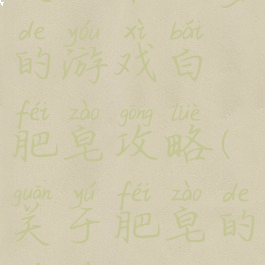 de yóu xì bái
的游戏白
féi zào gōng lüè
肥皂攻略(
guān yú féi zào de
关于肥皂的